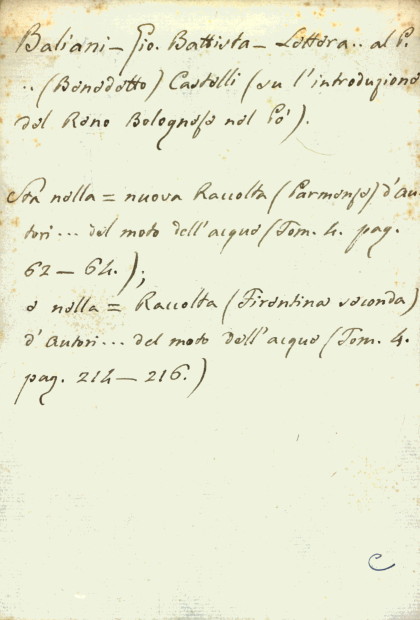 Baliani — Gio. Battista — Lettera .. al P.
.. (Benedetto) Castelli (su l'introduzione
del Reno Bolognese nel Pò).
Sta nella = nuova Raccolta (Parmense) d'au-
tori ... del moto dell'acque (Tom. 4. pag.
62 — 64.);
e nella = Raccolta (Fiorentina seconda)
d'autori ... del moto dell'acque (Tom. 4.
pag. 214 — 216.)
C